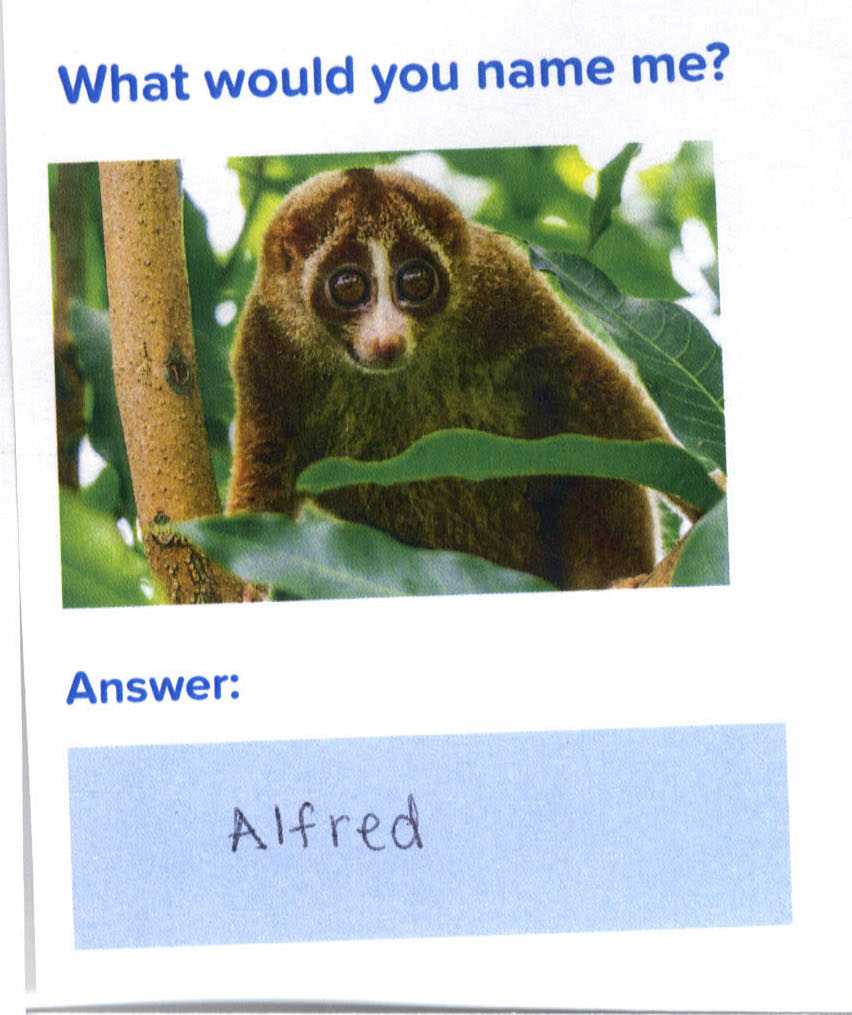 What would you name me?
Answer:
Alfred